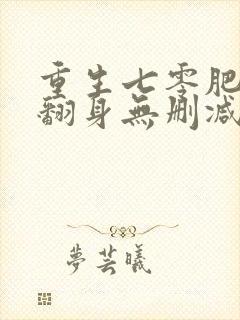 重生七零肥
翻身無刪減
夢芸曦